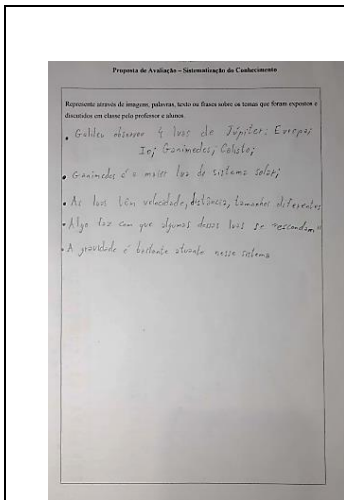 Proposta de Avaliação – Sistematização do Conhecimento
Represente através de imagens, palavras, texto ou frases sobre os temas que foram expostos e
discutidos em classe pelo professor e alunos.
• Galileu observou 4 luas de Júpiter: Europa;
Io; Ganimedes; Calisto;
• Ganimedes é a maior lua do sistema solar;
• As luas têm velocidade, distância, tamanhos diferentes
• Algo faz com que algumas dessas luas se "escondam"
• A gravidade é bastante atuante nesse sistema